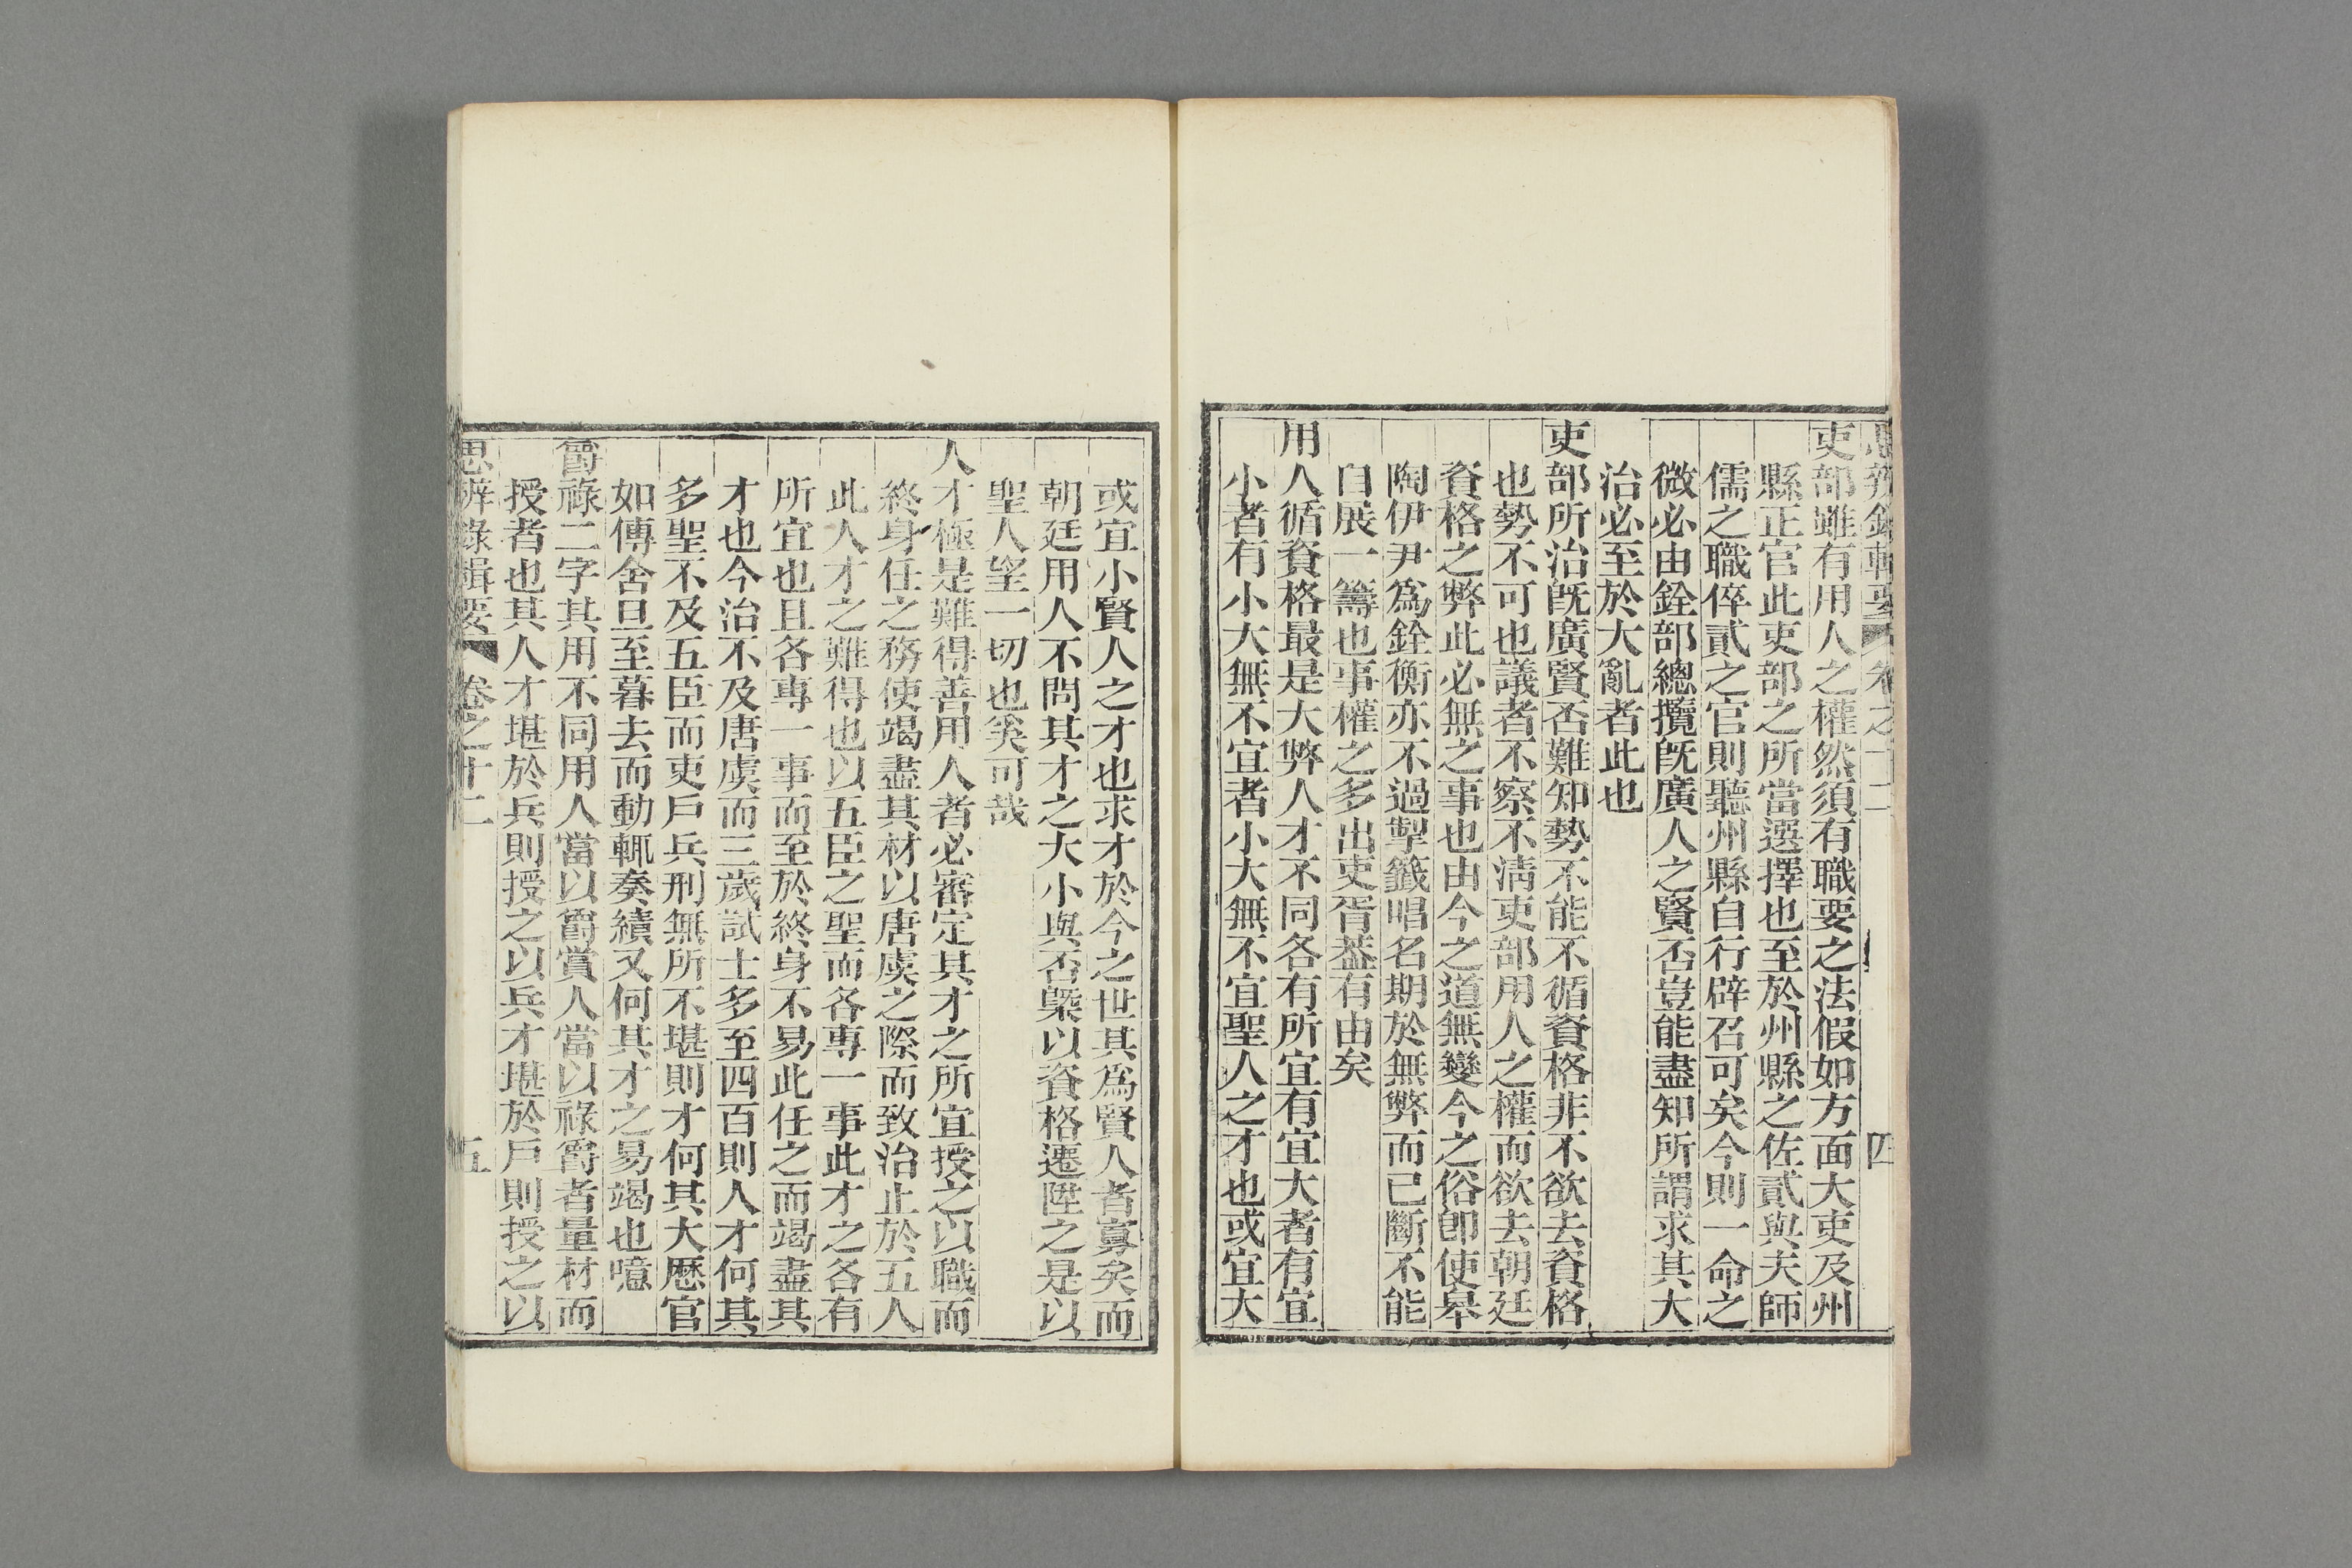 思辨錄輯要 卷之十二 四
吏部雖有用人之權然須有職要之法假如方面大吏及州
縣正官此吏部之所當選擇也至於州縣之佐貳與夫師
儒之職倅貳之官則聽州縣自行辟召可矣今則一命之
微必由銓部總攬旣廣人之賢否豈能盡知所謂求其大
治必至於大亂者此也
吏部所治旣廣賢否難知勢不能不循資格非不欲去資格
也勢不可也議者不察不淸吏部用人之權而欲去朝廷
資格之弊此必無之事也由今之道無變今之俗卽使皋
陶伊尹爲銓衡亦不過掣籤唱名期於無弊而已斷不能
自展一籌也事權之多出吏胥葢有由矣
用人循資格最是大弊人才不同各有所宜有宜大者有宜
小者有小大無不宜者小大無不宜聖人之才也或宜大
或宜小賢人之才也求才於今之世其爲賢人者寡矣而
朝廷用人不問其才之大小與否槩以資格遷陞之是以
聖人望一切也奚可哉
人才極是難得善用人者必審定其才之所宜授之以職而
終身任之務使竭盡其材以唐虞之際而致治止於五人
此人才之難得也以五臣之聖而各專一事此才之各有
所宜也且各專一事而至於終身不易此任之而竭盡其
才也今治不及唐虞而三歲試士多至四百則人才何其
多聖不及五臣而吏戶兵刑無所不堪則才何其大歷官
如傳舍旦至暮去而動輒奏績又何其才之易竭也噫
爵祿二字其用不同用人當以爵賞人當以祿爵者量材而
授者也其人才堪於兵則授之以兵才堪於戶則授之以
思辨錄輯要 卷之十二 五